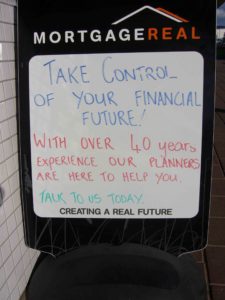 MORTGAGEREAL
TAKE CONTROL
OF YOUR FINANCIAL
FUTURE!
WITH OVER 40 years
EXPERIENCE OUR PLANNERS
ARE HERE TO HELP YOU.
TALK TO US TODAY.
CREATING A REAL FUTURE